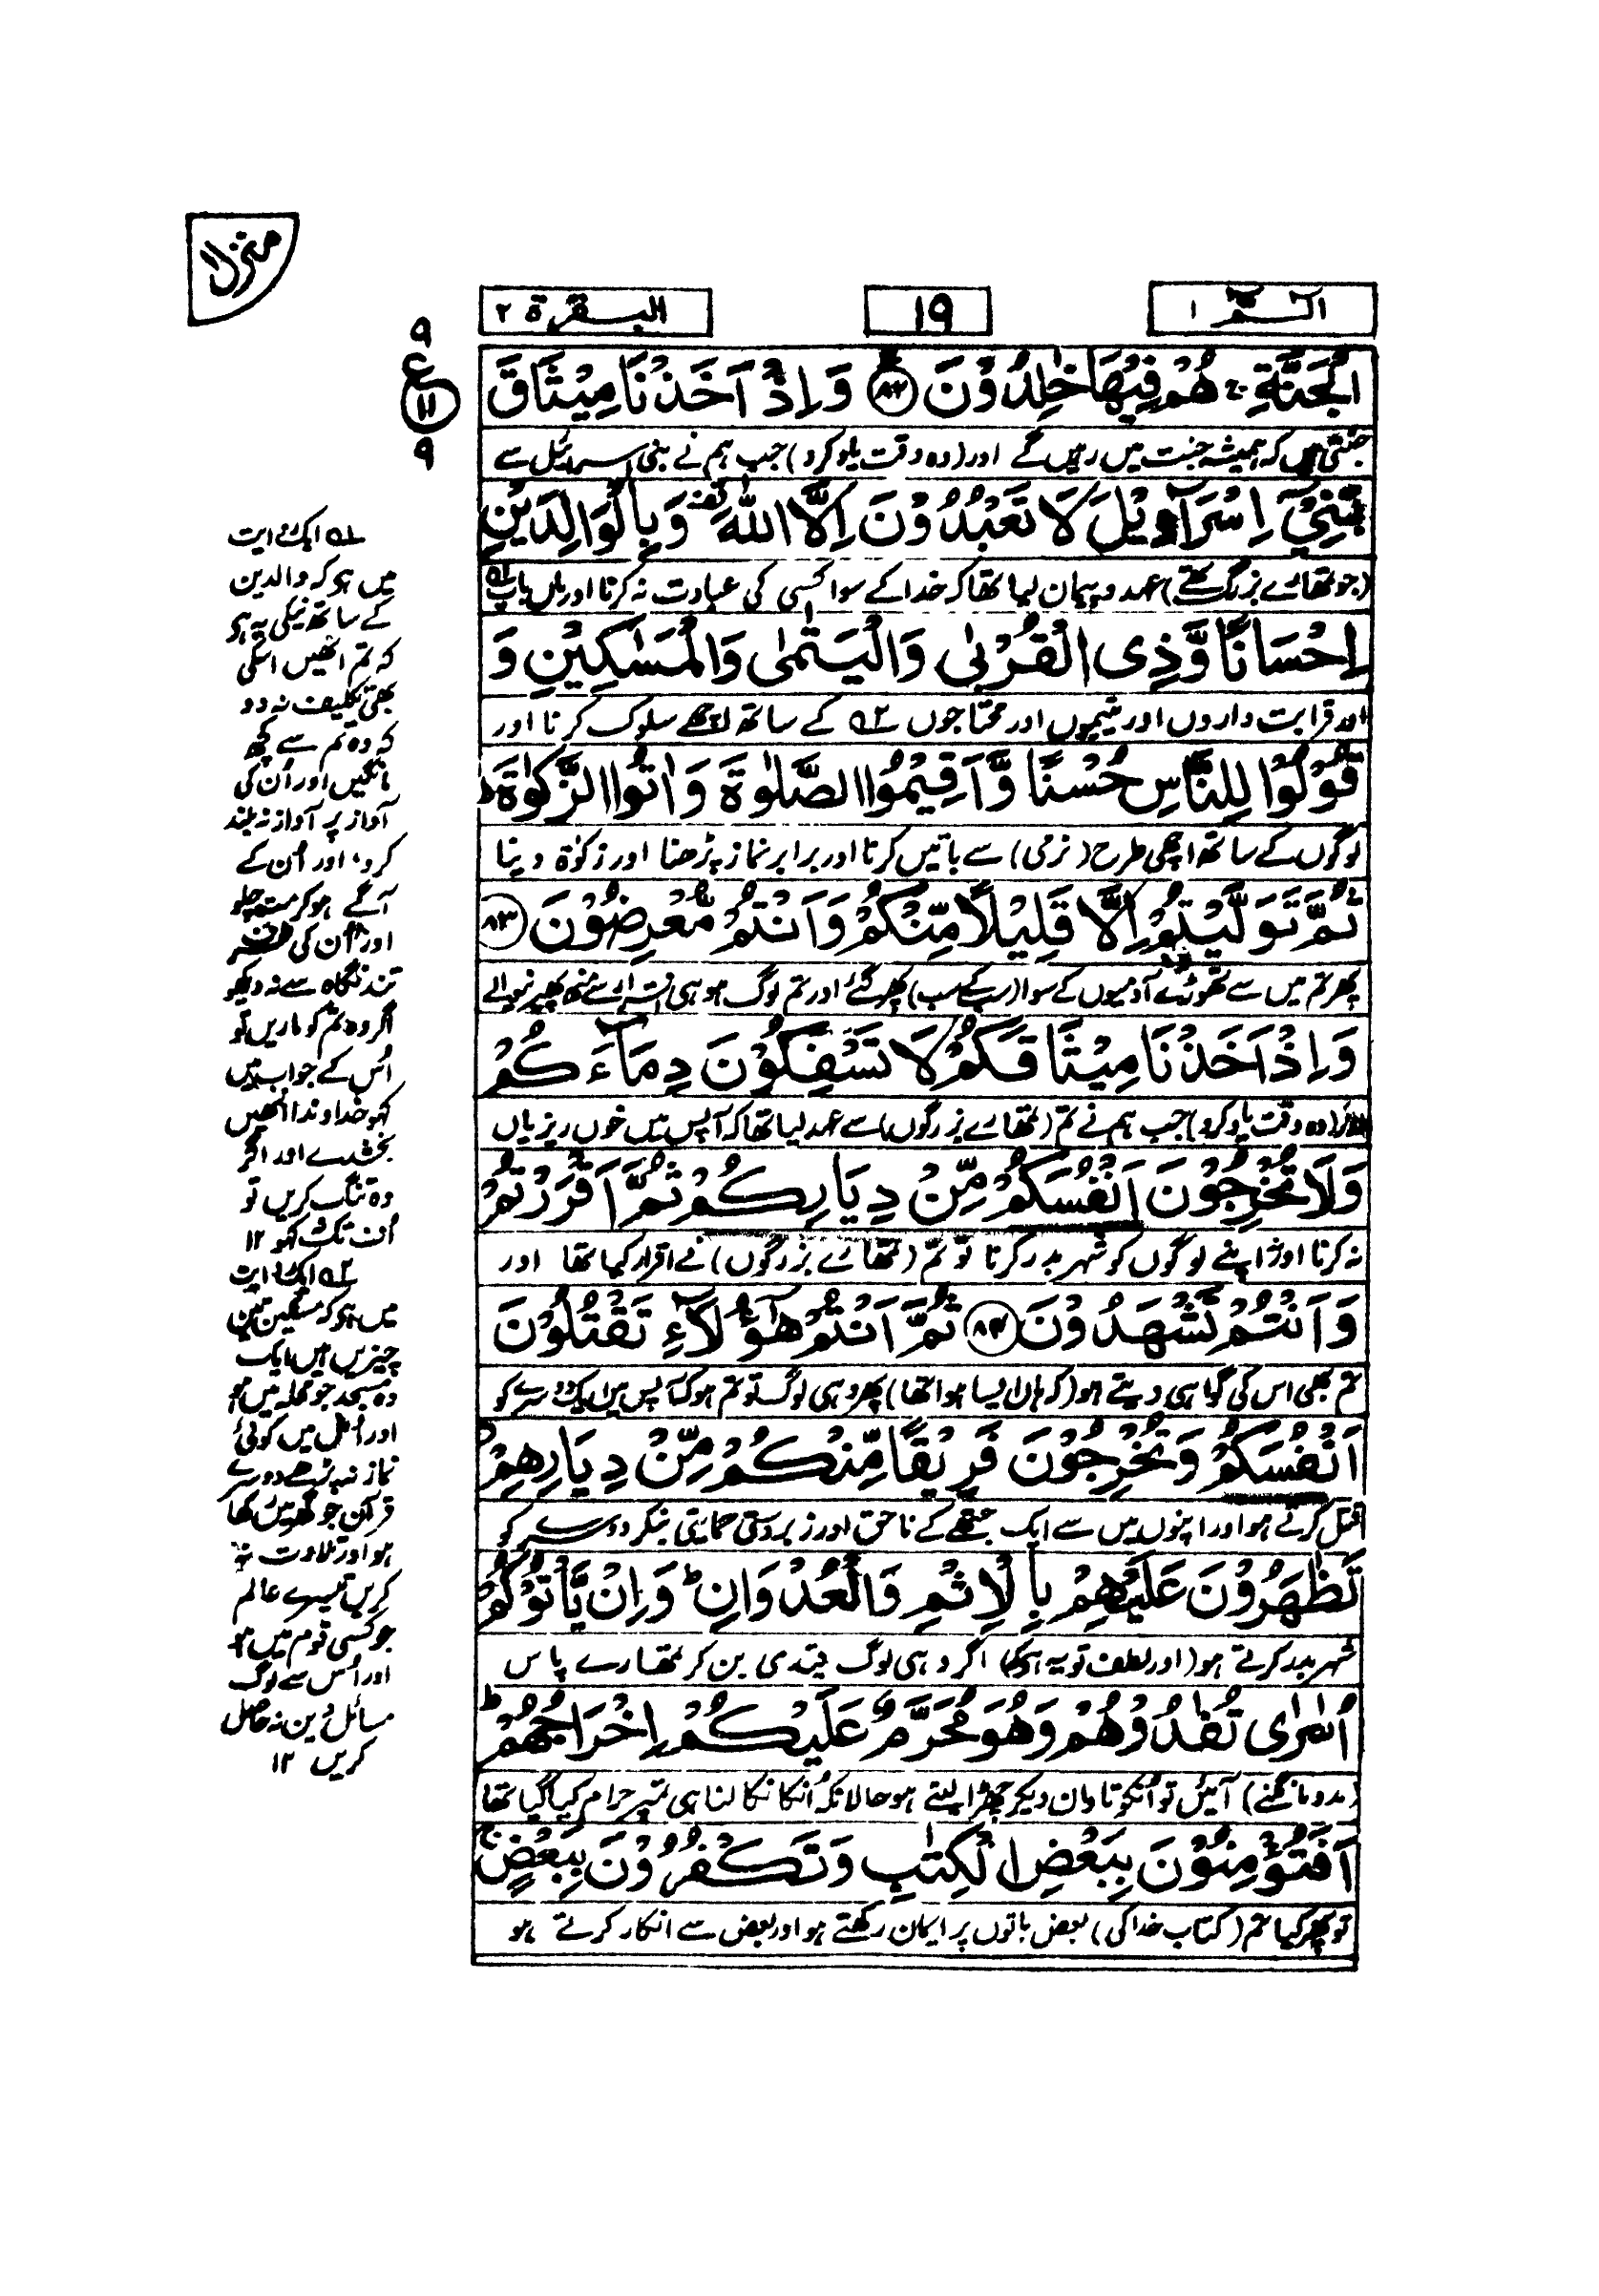 الٓمّٓ ١
١٩
البقرة ٢
منزل ١
٩
ع
١١
٩
الْجَنَّةِ ۚ هُمْ فِيْهَا خٰلِدُوْنَ ﴿٨٢﴾ وَ اِذْ اَخَذْنَا مِيْثَاقَ
جنتی ہیں کہ ہمیشہ جنت میں رہیں گے اور (وہ وقت یاد کرو) جب ہم نے بنی اسرائیل سے
بَنِيْٓ اِسْرَآءِيْلَ لَا تَعْبُدُوْنَ اِلَّا اللّٰهَ ۟ وَبِالْوَالِدَيْنِ
(جو تمھارے بزرگ تھے) عہد و پیمان لیا تھا کہ خدا کے سوا کسی کی عبادت نہ کرنا اور ماں باپ ۱ے
اِحْسَانًا وَّذِى الْقُرْبٰى وَالْيَتٰمٰى وَالْمَسٰكِيْنِ وَ
اور قرابت داروں اور یتیموں اور محتاجوں ۲ے کے ساتھ اچھے سلوک کرنا اور
قُوْلُوْا لِلنَّاسِ حُسْنًا وَّاَقِيْمُوا الصَّلٰوةَ وَاٰتُوا الزَّكٰوةَ ؕ
لوگوں کے ساتھ اچھی طرح (نرمی) سے باتیں کرنا اور برابر نماز پڑھنا اور زکوٰة دینا
ثُمَّ تَوَلَّيْتُمْ اِلَّا قَلِيْلًا مِّنْكُمْ وَاَنْتُمْ مُّعْرِضُوْنَ ﴿٨٣﴾
پھر تم میں سے تھوڑے آدمیوں کے سوا (سب کے سب) پھر گئے اور تم لوگ ہو ہی اقرار سے منھ پھیرنیوالے
وَ اِذْ اَخَذْنَا مِيْثَاقَكُمْ لَا تَسْفِكُوْنَ دِمَآءَكُمْ
اور (وہ وقت یاد کرو) جب ہم نے تم (تمھارے بزرگوں) سے عہد لیا تھا کہ آپس میں خوں ریزیاں
وَلَا تُخْرِجُوْنَ اَنْفُسَكُمْ مِّنْ دِيَارِكُمْ ثُمَّ اَقْرَرْتُمْ
نہ کرنا اور نہ اپنے لوگوں کو شہر بدر کرنا تو تم (تمھارے بزرگوں) نے اقرار کیا تھا اور
وَاَنْتُمْ تَشْهَدُوْنَ ﴿٨٤﴾ ثُمَّ اَنْتُمْ هٰٓؤُلَآءِ تَقْتُلُوْنَ
تم بھی اس کی گواہی دیتے ہو (کہ ہاں ایسا ہوا تھا) پھر وہی لوگ تو تم ہو کہ آپس میں ایک دوسرے کو
اَنْفُسَكُمْ وَتُخْرِجُوْنَ فَرِيْقًا مِّنْكُمْ مِّنْ دِيَارِهِمْ ؗ
قتل کرتے ہو اور اپنوں میں سے ایک جتھے کے ناحق اور زبردستی حمایتی بنکر دوسرے کو
تَظٰهَرُوْنَ عَلَيْهِمْ بِالْاِثْمِ وَالْعُدْوَانِ ؕ وَاِنْ يَّاْتُوْكُمْ
شہر بدر کرتے ہو (اور لطف تو یہ ہے کہ) اگر وہی لوگ قیدی بن کر تمھارے پاس
اُسٰرٰى تُفٰدُوْهُمْ وَهُوَ مُحَرَّمٌ عَلَيْكُمْ اِخْرَاجُهُمْ ؕ
(مدد مانگنے) آئیں تو انکو تاوان دیکر چھڑا لیتے ہو حالانکہ اُنکا نکالنا ہی تمپر حرام کیا گیا تھا
اَفَتُؤْمِنُوْنَ بِبَعْضِ الْكِتٰبِ وَتَكْفُرُوْنَ بِبَعْضٍ ۚ
تو پھر کیا تم (کتاب خدا کی) بعض باتوں پر ایمان رکھتے ہو اور بعض سے انکار کرتے ہو
۱ے ایک روایت
میں ہو کہ والدین
کے ساتھ نیکی یہ ہو
کہ تم انھیں اسکی
بھی تکلیف نہ دو
کہ وہ تم سے کچھ
مانگیں اور اُن کی
آواز پر آواز نہ بلند
کرو، اور اُن کے
آگے ہو کر مت چلو
اور اُن کی طرف
تند نگاہ سے نہ دیکھو
اگر وہ تم کو ماریں تو
اُس کے جواب میں
کہو خداوندا انھیں
بخشدے اور اگر
وہ تنگ کریں تو
اُف تک نہ کہو ١٢
۲ے ایک روایت
میں ہو کہ مسکین تین
چیزیں ہیں ایک
وہ مسجد جو محلہ میں ہو
اور اُس میں کوئی
نماز نہ پڑھے دوسرے
قرآن جو گھر میں رکھا
ہو اور تلاوت نہ
کریں تیسرے عالم
جو کسی قوم میں ہو
اور اُس سے لوگ
مسائل دین نہ حاصل
کریں ١٢